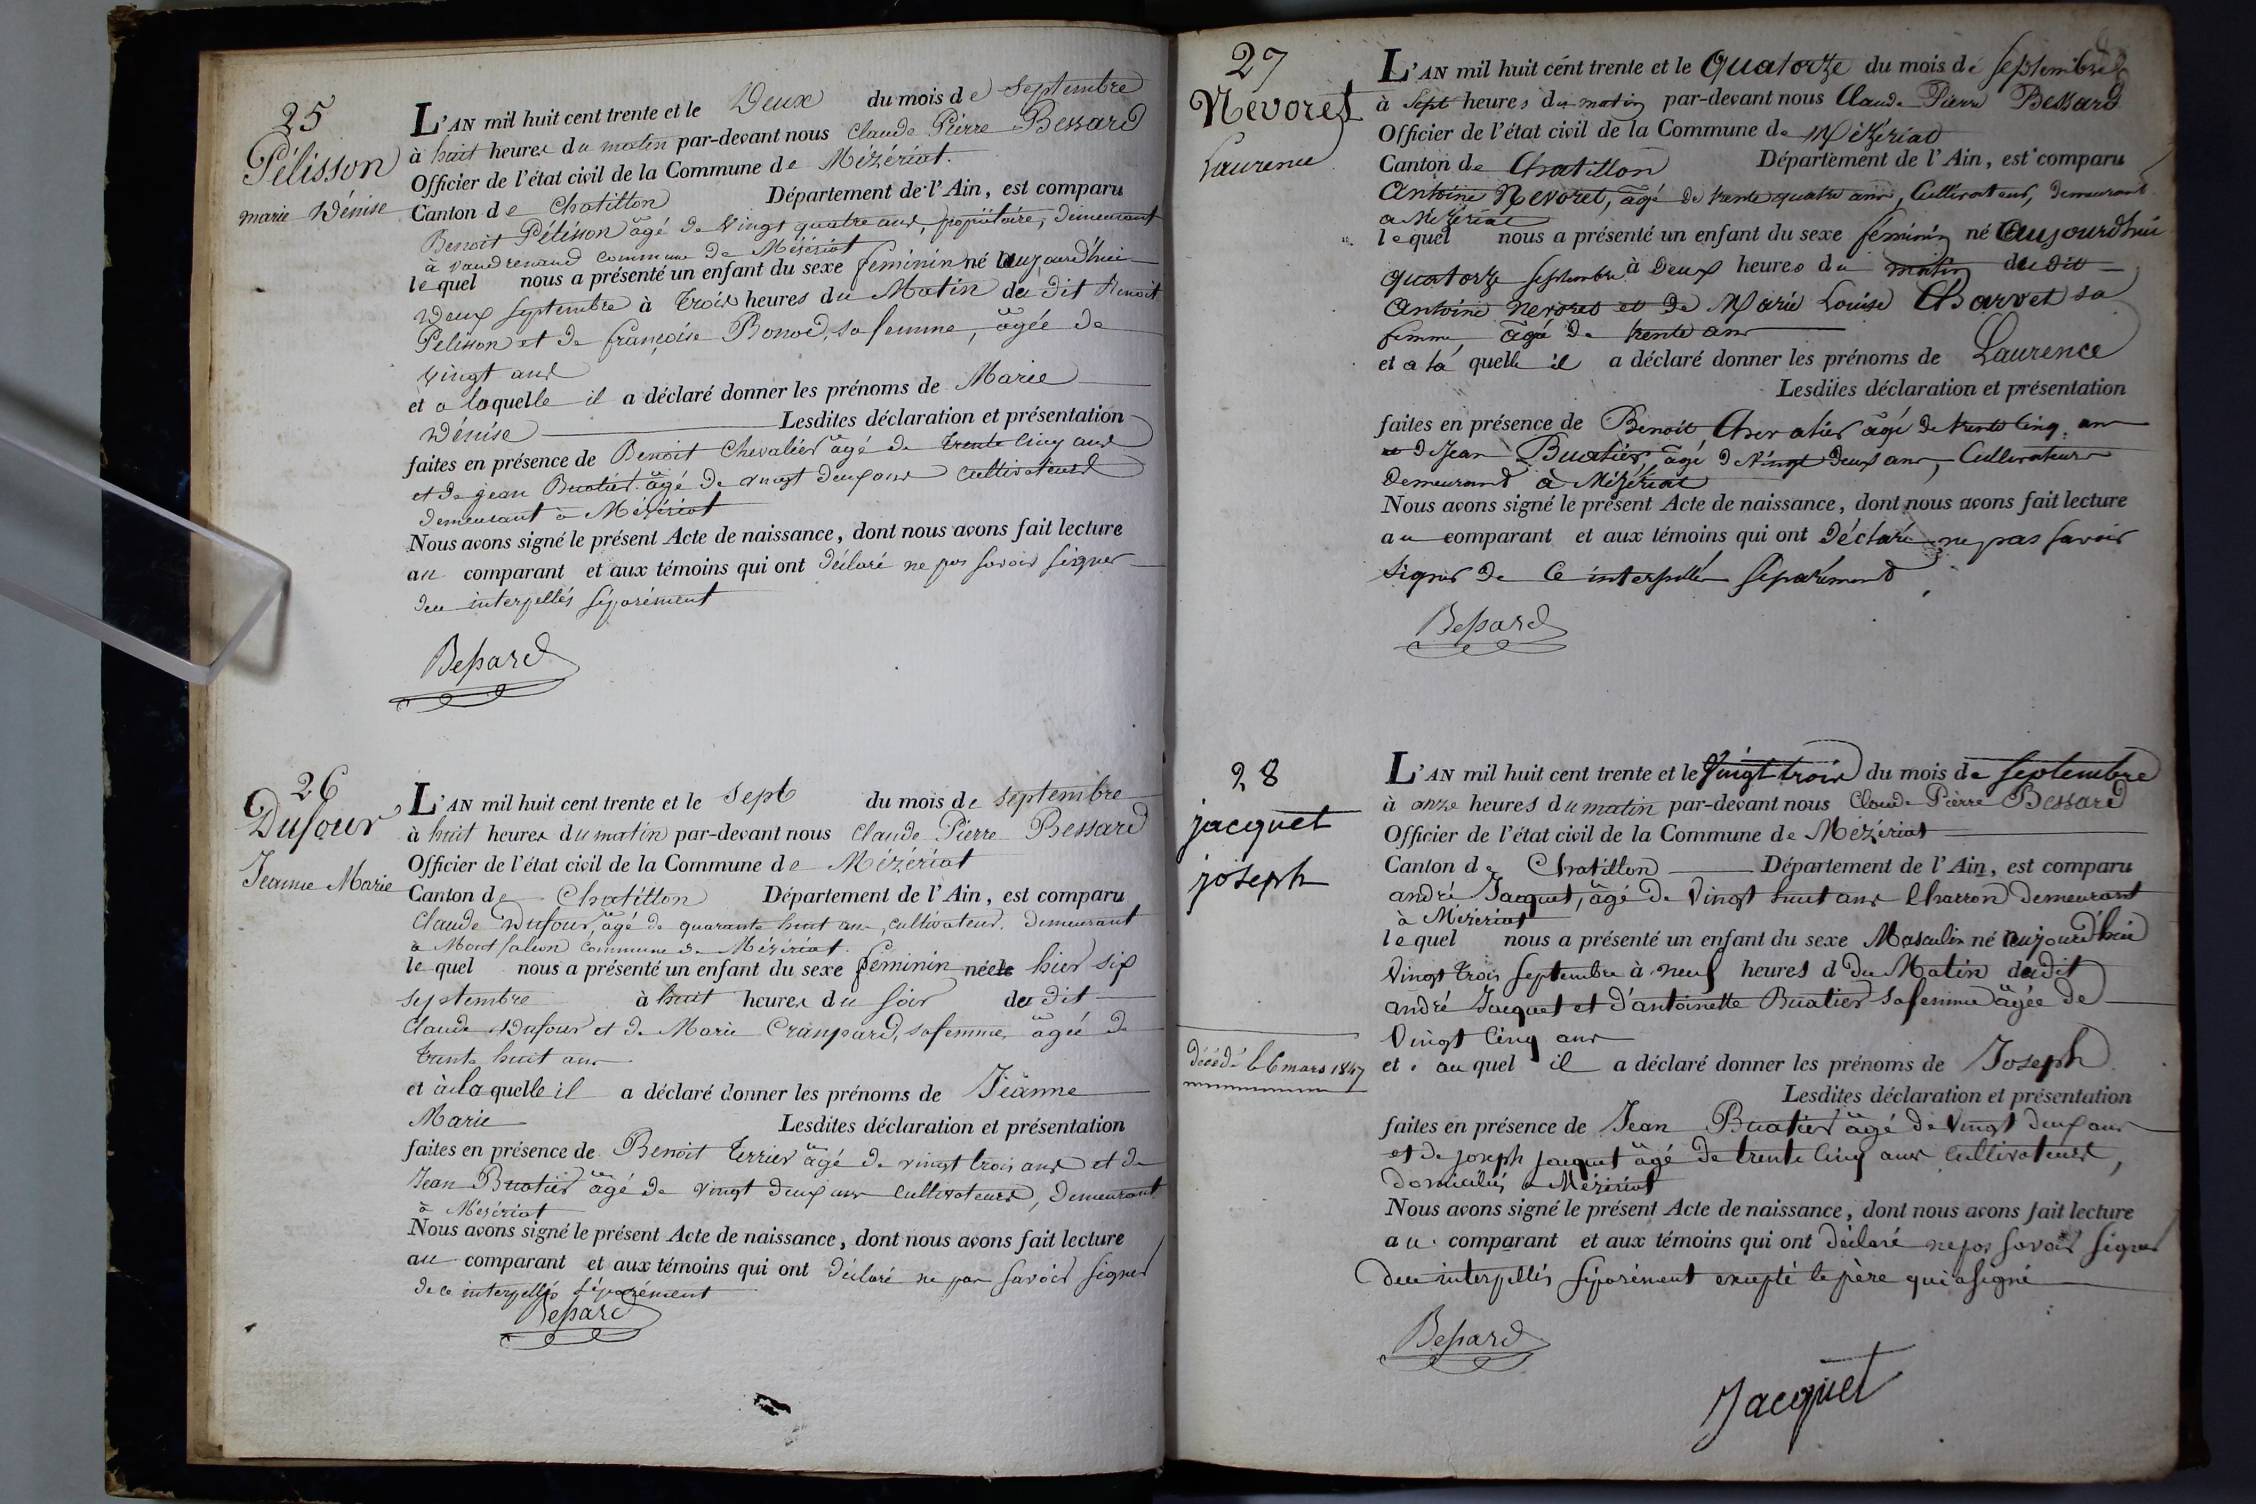 25
Pélisson
marie Dénise
L'AN mil huit cent trente et le Deux du mois de septembre
à huit heures du matin par-devant nous Claude Pierre Bessard
Officier de l'état civil de la Commune de Mézériat.
Canton de Chatillon Département de l'Ain, est comparu
Benoit Pélisson âgé de vingt quatre ans, propriétaire, demeurant
à vaudrenand commune de Mézériat
le quel nous a présenté un enfant du sexe feminin né aujourd'hui
Deux septembre à trois heures du Matin du dit Benoit
Pelisson et de françoise sa femme, âgée de
vingt ans
et a laquelle il a déclaré donner les prénoms de Marie
Dénise Lesdites déclaration et présentation
faites en présence de Benoit Chevalier âgé de trente cinq ans
et de jean Buatier âgé de vingt deux ans cultivateurs
demeurant à Mézériat
Nous avons signé le présent Acte de naissance, dont nous avons fait lecture
au comparant et aux témoins qui ont déclaré ne pas savoir signer
de ce interpellés séparément
Bessard
26
Dufour
Jeanne Marie
L'AN mil huit cent trente et le sept du mois de septembre
à huit heures du matin par-devant nous Claude Pierre Bessard
Officier de l'état civil de la Commune de Mézériat
Canton de Chatillon Département de l'Ain, est comparu
Claude Dufour, âgé de quarante huit ans, cultivateur, demeurant
à Montfalcon commune de Mézériat.
le quel nous a présenté un enfant du sexe feminin née hier six
septembre à huit heures du soir du dit
Claude Dufour et de Marie sa femme, âgée de
trente huit ans
et à la quelle il a déclaré donner les prénoms de Jeanne
Marie Lesdites déclaration et présentation
faites en présence de Benoit Terrier âgé de vingt trois ans et de
Jean Buatier âgé de vingt deux ans cultivateurs, demeurant
à Mézériat
Nous avons signé le présent Acte de naissance, dont nous avons fait lecture
au comparant et aux témoins qui ont déclaré ne pas savoir signer
de ce interpellés séparément
Bessard
27
Nevoret
Laurence
L'AN mil huit cent trente et le Quatorze du mois de septembre
à sept heures du matin par-devant nous Claude Pierre Bessard
Officier de l'état civil de la Commune de Mézériat
Canton de Chatillon Département de l'Ain, est comparu
Antoine Nevoret, âgé de trente quatre ans, Cultivateur, demeurant
a Mézériat
le quel nous a présenté un enfant du sexe feminin né aujourd'hui
quatorze septembre à Deux heures du matin du dit
Antoine Nevoret et de Marie Louise Charvet sa
femme, âgé de trente ans
et a la quelle il a déclaré donner les prénoms de Laurence
Lesdites déclaration et présentation
faites en présence de Benoit Chevatier âgé de trente cinq ans
et de Jean Buatier âgé de vingt deux ans, Cultivateurs
Demeurant à Mézériat
Nous avons signé le présent Acte de naissance, dont nous avons fait lecture
au comparant et aux témoins qui ont déclaré ne pas savoir
signer de ce interpellés séparément
Bessard
28
jacquet
joseph
décédé le 6 mars 1847
L'AN mil huit cent trente et le Vingt trois du mois de septembre
à onze heures du matin par-devant nous Claude Pierre Bessard
Officier de l'état civil de la Commune de Mézériat
Canton de Chatillon Département de l'Ain, est comparu
andré Jacquet, âgé de vingt huit ans charron demeurant
à Mézériat
le quel nous a présenté un enfant du sexe Masculin né aujourd'hui
vingt trois septembre à neuf heures d du Matin du dit
andré Jacquet et d'antoinette Buatier sa femme âgée de
vingt cinq ans
et au quel il a déclaré donner les prénoms de Joseph
Lesdites déclaration et présentation
faites en présence de Jean Buatier âgé de vingt deux ans
et de joseph jacquet âgé de trente cinq ans cultivateurs,
domiciliés a Mézériat
Nous avons signé le présent Acte de naissance, dont nous avons fait lecture
au comparant et aux témoins qui ont déclaré ne pas savoir signer
de ce interpellés séparément excepté le père qui a signé
Bessard
Jacquet